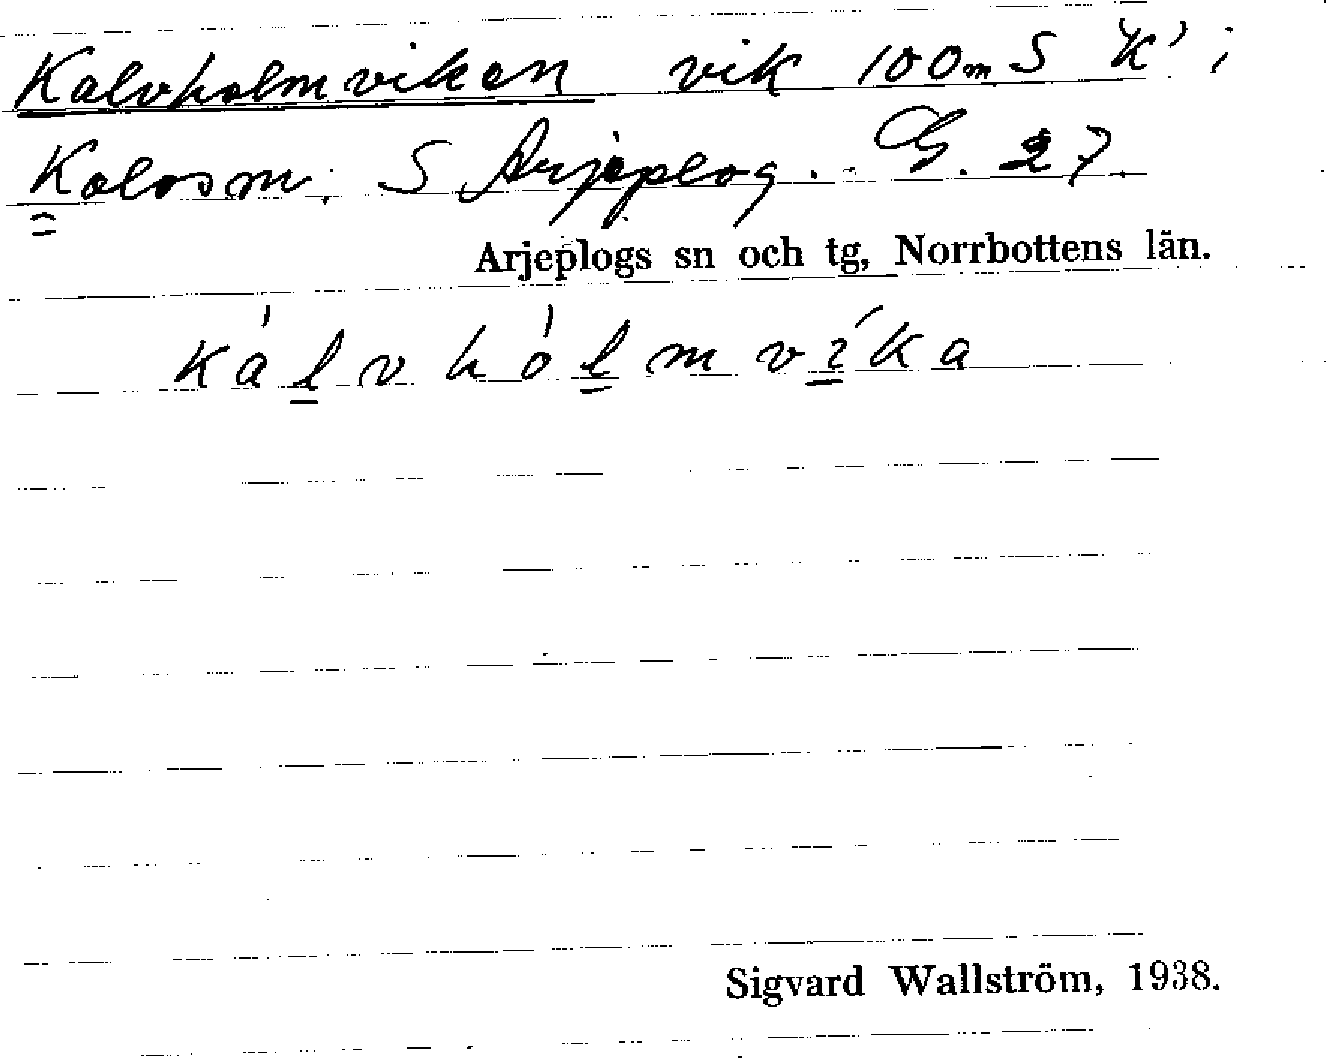 Kalvholmviken vik 100 m S K' i
Kalosm, S Arjeplog. G. 27.
Arjeplogs sn och tg, Norrbottens län.
kálvhólmvíka
Sigvard Wallström, 1938.